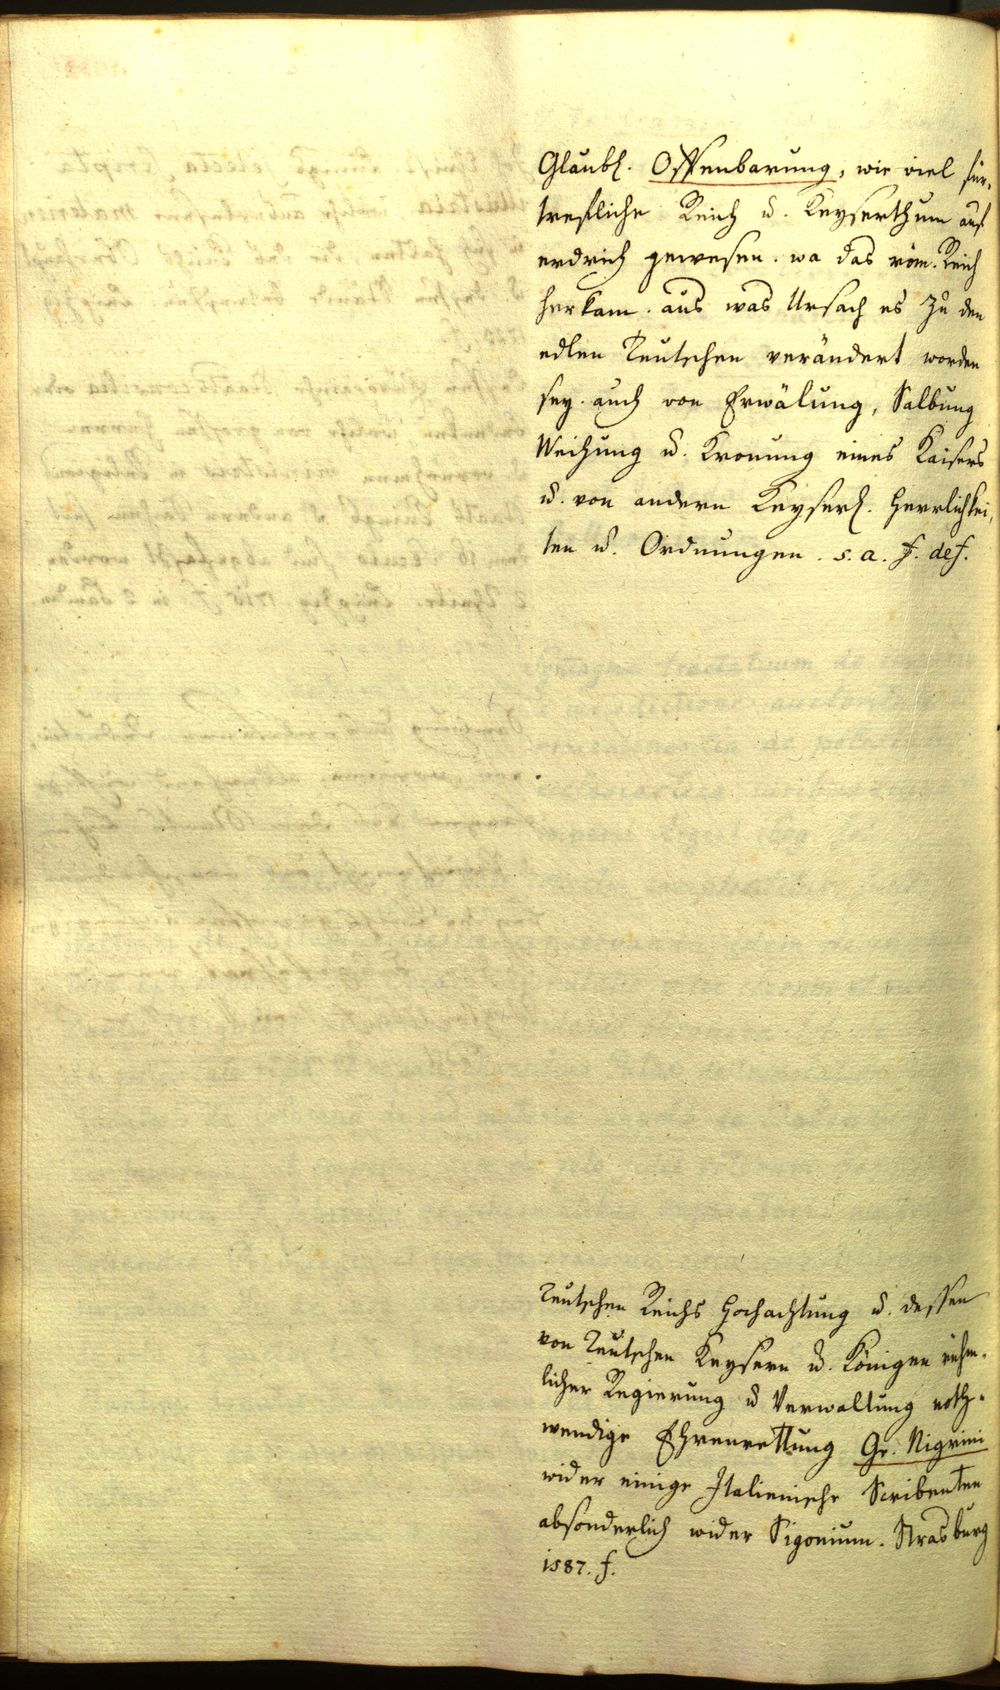 Glaubl. Offenbarung, wie viel für-
trefliche Reich u. Keyserthum auf
erdrich gewesen. wa das röm. Reich
herkam. aus was Ursach es zu den
edlen Teutschen verändert worden
sey. auch von Erwälung, Salbung
Weihung u. Kronung eines Kaisers
u. von andern Keyserl. Herrlichkei-
ten u. Ordnungen. s. a. f. def.
Teutschen Reichs Hochachtung u. dessen
von Teutschen Keysern u. Königen rühm-
licher Regierung u Verwaltung noth-
wendige Ehrenrettung Gr. Nigrini
wider einige Italienische Scribenten
absonderlich wider Sigonium. Strasburg
1587. f.